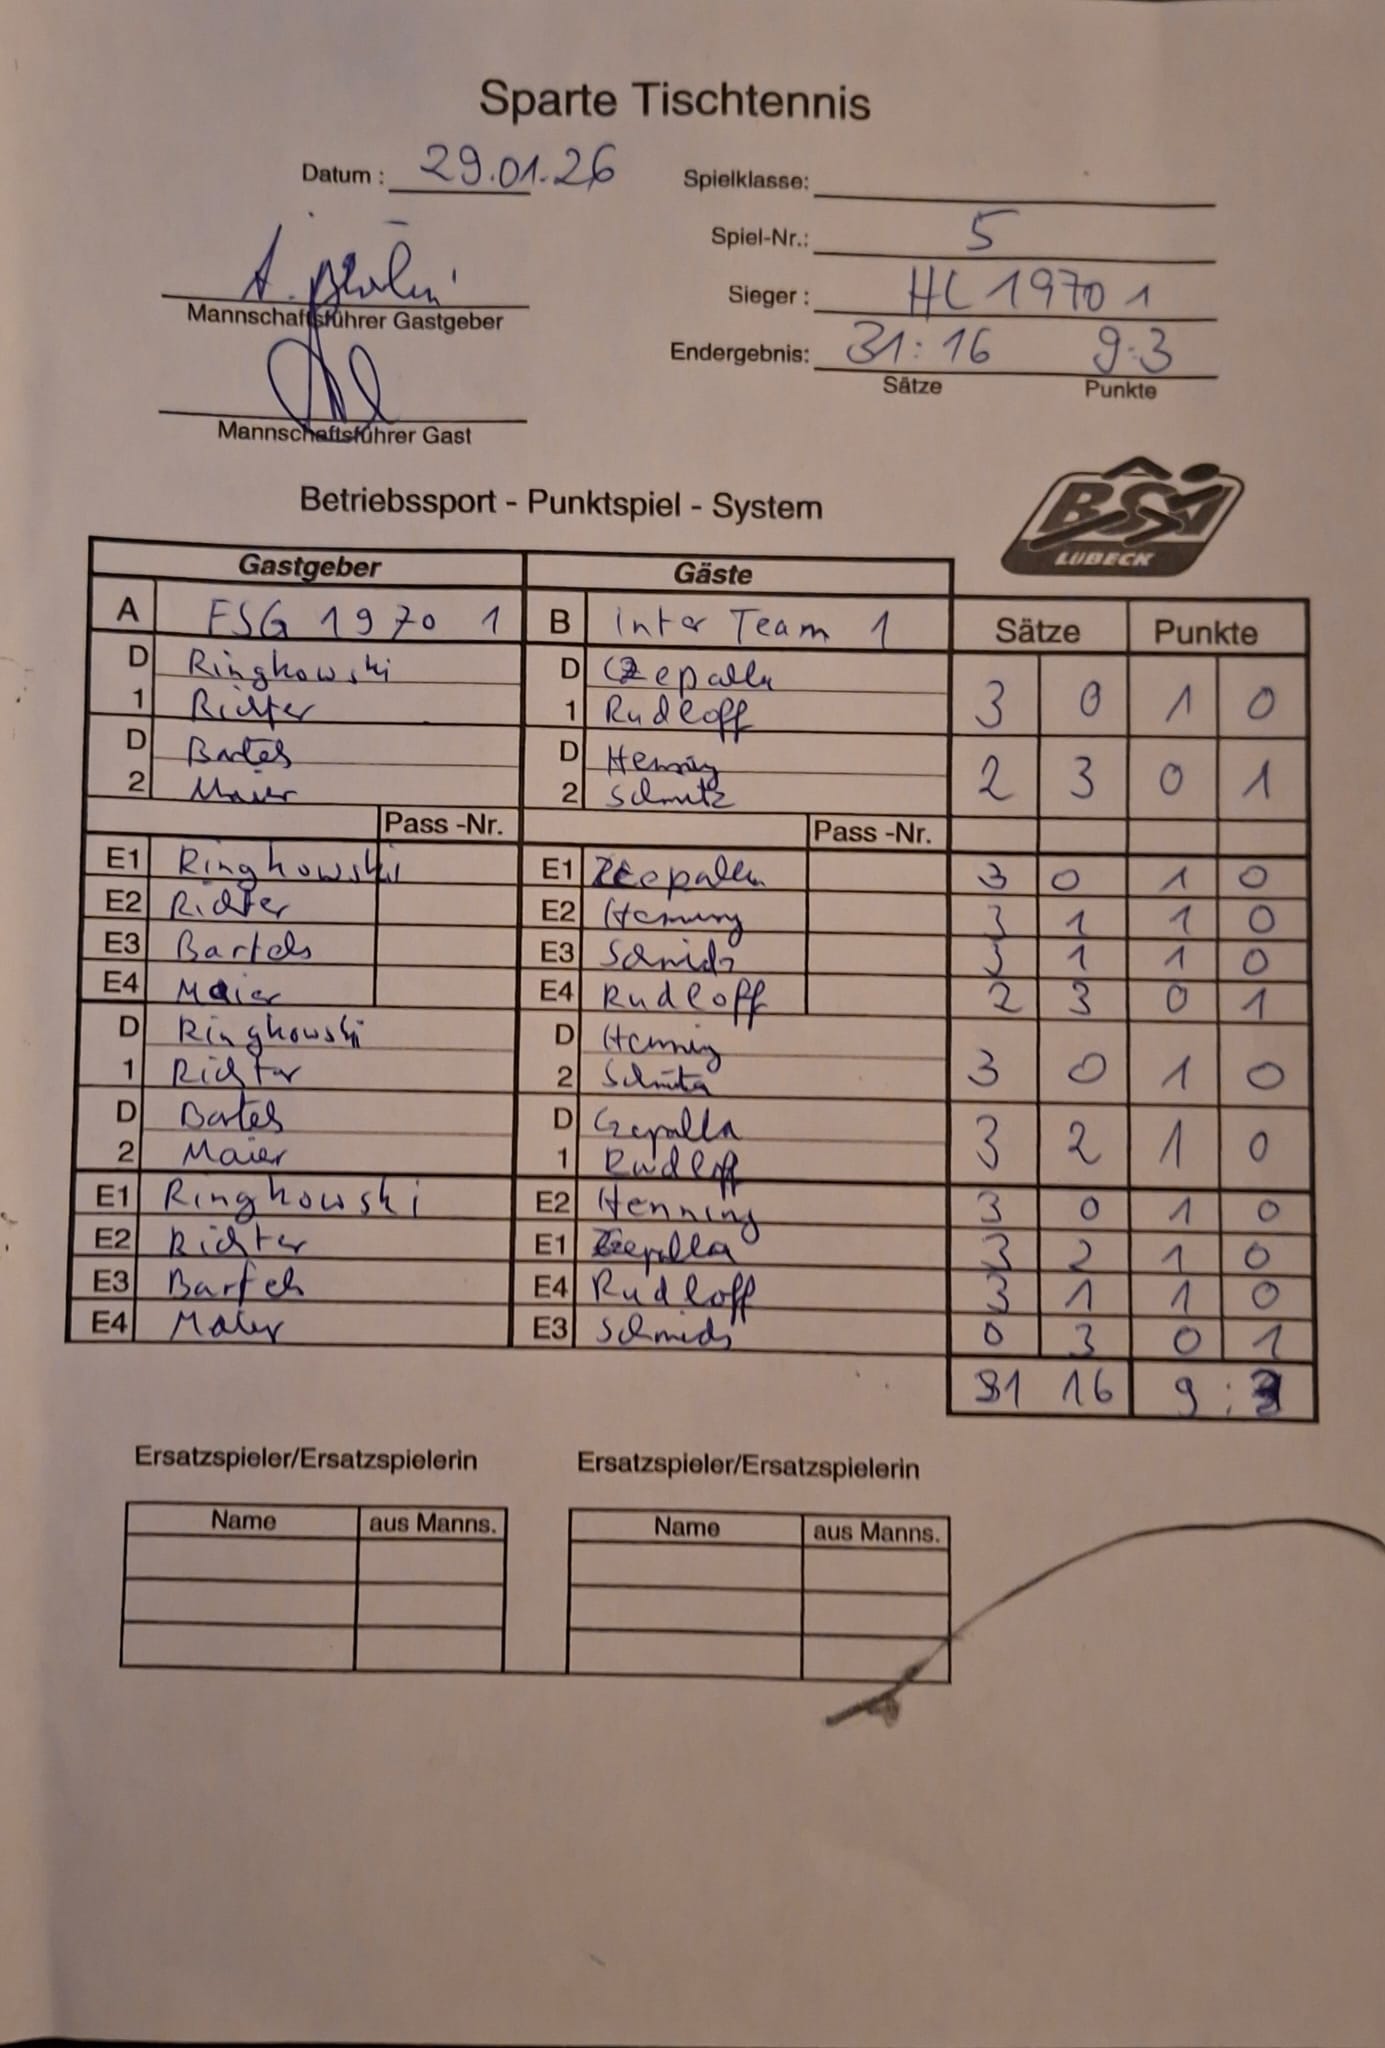 Sparte Tischtennis
Datum : 29.01.26
Spielklasse:
Spiel-Nr.: 5
Sieger : HL 1970 1
Mannschaftsführer Gastgeber
Endergebnis: 31:16 9:3
Sätze Punkte
Mannschaftsführer Gast
Betriebssport - Punktspiel - System
BSV
LÜBECK
Gastgeber Gäste
A FSG 1970 1 B Inter Team 1 Sätze Punkte
D Ringkowski D Czepalla
1 Richter 1 Rudloff 3 0 1 0
D Bartels D Hennig
2 Maier 2 Schmitz 2 3 0 1
Pass -Nr. Pass -Nr.
E1 Ringkowski E1 Czepalla 3 0 1 0
E2 Richter E2 Henning 3 1 1 0
E3 Bartels E3 Schmidz 3 1 1 0
E4 Maier E4 Rudloff 2 3 0 1
D Ringkowski D Hennig
1 Richter 2 Schmitz 3 0 1 0
D Bartels D Czepalla
2 Maier 1 Rudloff 3 2 1 0
E1 Ringkowski E2 Henning 3 0 1 0
E2 Richter E1 Czepalla 3 2 1 0
E3 Bartels E4 Rudloff 3 1 1 0
E4 Maier E3 Schmidz 0 3 0 1
31 16 9 : 3
Ersatzspieler/Ersatzspielerin Ersatzspieler/Ersatzspielerin
Name aus Manns. Name aus Manns.